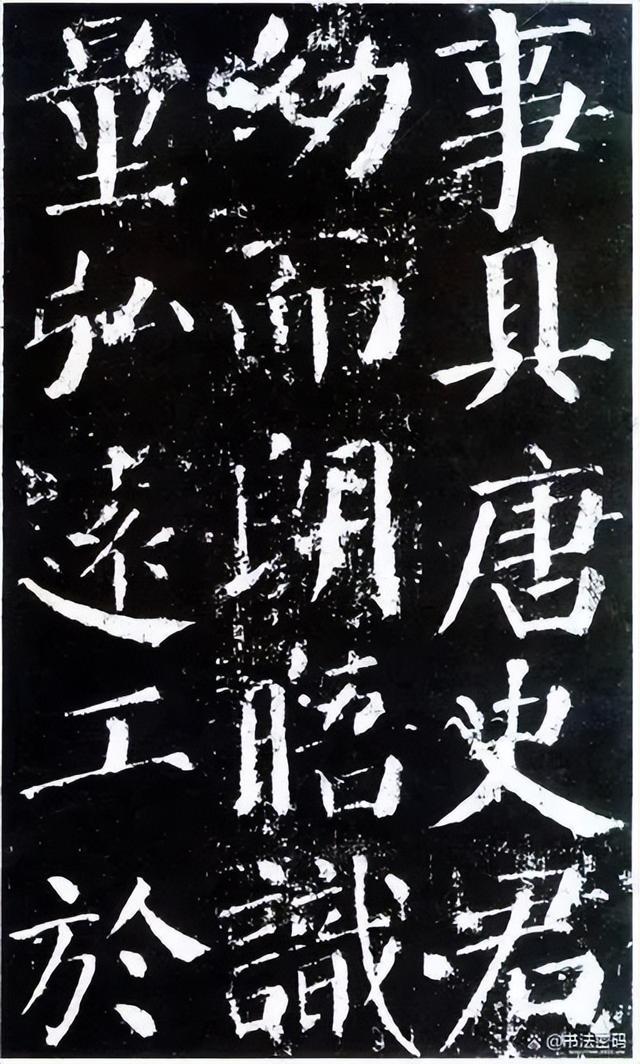 事具唐史君
幼而朗晤識
量弘遠工於
@书法密码